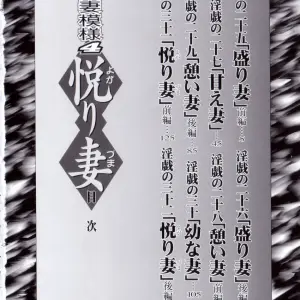 の二十五「盛り妻」前編…5
淫戯の二十六「盛り妻」後編
淫戯の二十七「甘え妻」…45
淫戯の二十八「憩い妻」前編
の二十九「憩い妻」後編 85
淫戯の三十「幼な妻」…105
の三十一「悦り妻」前編…125
淫戯の三十二「悦り妻」後編
妻模様4
悦り妻
よが
つま
目次